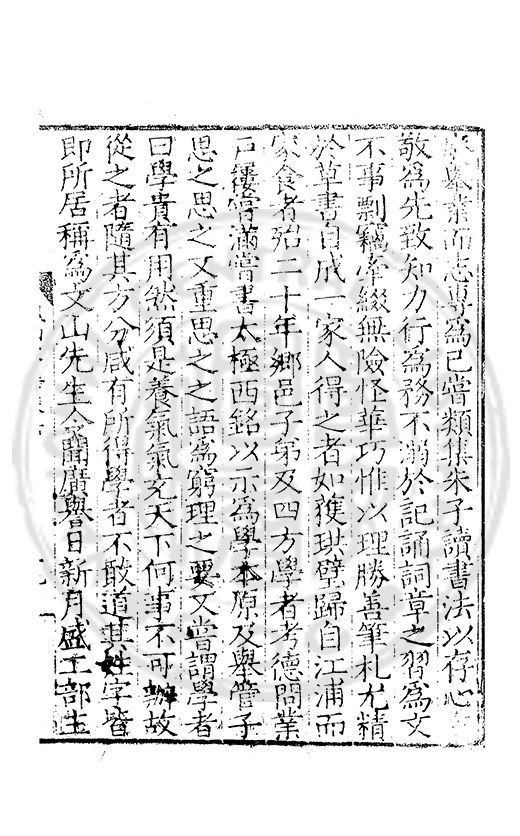 舉業而志專爲己嘗類集朱子讀書法以存心
敬爲先致知力行爲務不溺於記誦詞章之習爲文
不事剽竊牽綴無險怪華巧惟以理勝善筆札尤精
於草書自成一家人得之者如獲珙璧歸自江浦而
家食者殆二十年鄉邑子弟及四方學者考德問業
戶屨嘗滿嘗書太極西銘以示爲學本原及舉管子
思之思之又重思之之語爲窮理之要又嘗謂學者
曰學貴有用然須是養氣氣充天下何事不可辦故
從之者隨其方分咸有所得學者不敢道其姓字皆
即所居稱爲文山先生令聞廣譽日新月盛工部主